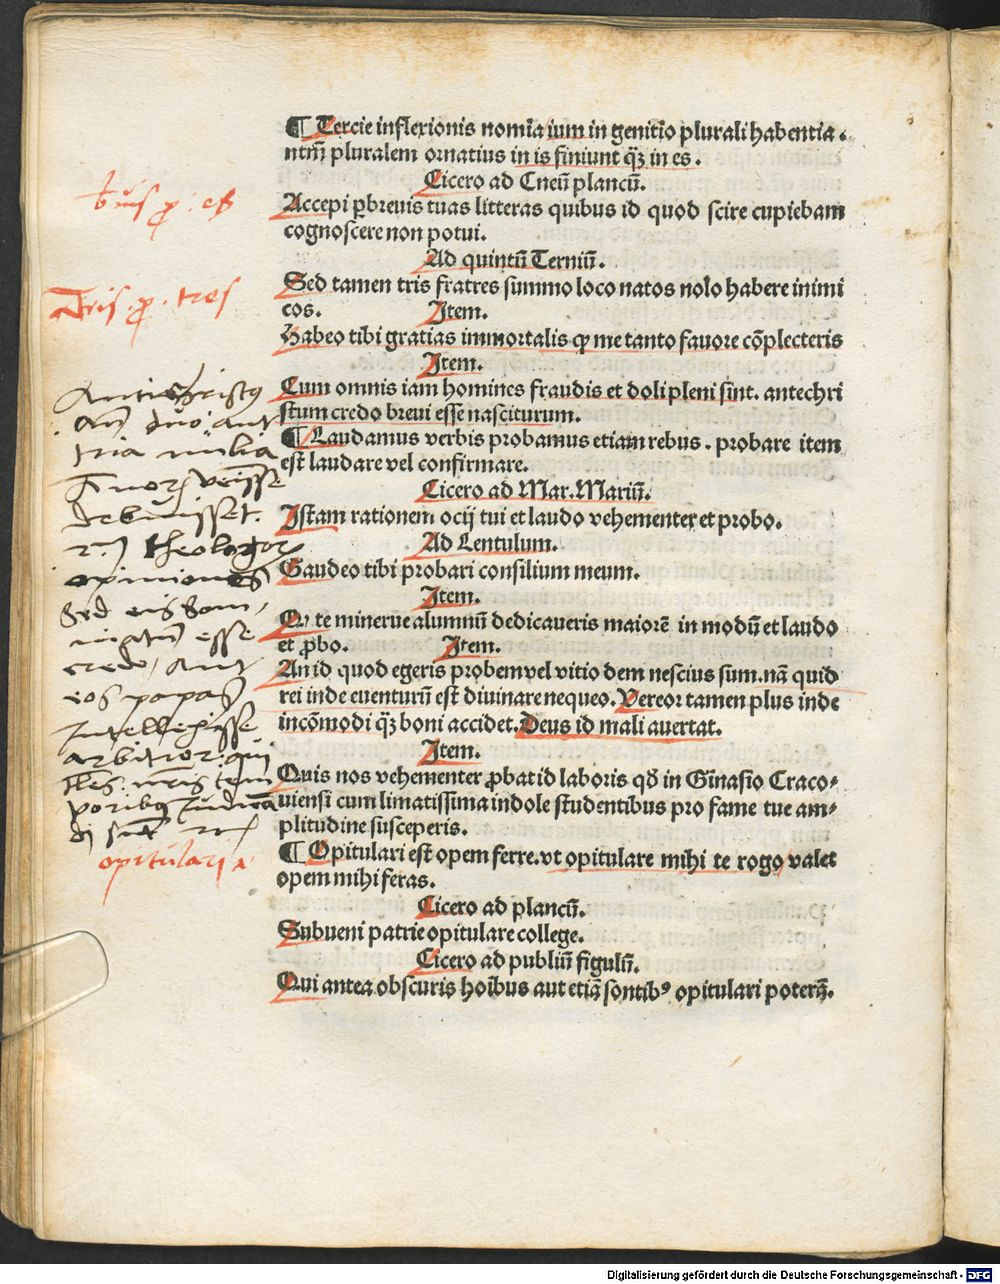 ¶ Tercie inflexionis nomīa ium in genitīo plurali habentia .
ntm̄ pluralem ornatius in is finiunt qȝ̄ in es .
Cicero ad Cneū plancū.
Accepi ꝑbreuis tuas litteras quibus id quod scire cupiebam
cognoscere non potui.
Ad quintū Ternū.
Sed tamen tris fratres summo loco natos nolo habere inimi
cos. Item.
Habeo tibi gratias immortalis ꝙ me tanto fauore cōplecteris
Item.
Cum omnis iam homines fraudis et doli pleni sint. antechri
stum credo breui esse nasciturum.
¶ Laudamus verbis probamus etiam rebus . probare item
est laudare vel confirmare.
Cicero ad Mar. Mariū.
Istam rationem ocij tui et laudo vehementer et probo.
Ad Lentulum.
Gaudeo tibi probari consilium meum.
Item.
Qv te minerue alumnū dedicaueris maiorē in modū et laudo
et ꝓbo. Item.
An id quod egeris probem vel vitio dem nescius sum. nā quid
rei inde euenturū est diuinare nequeo. Uereor tamen plus inde
incōmodi qȝ̄ boni accidet. Deus id mali auertat.
Item.
Quis nos vehementer ꝓbat id laboris qđ in Ginasio Craco-
uiensi cum limatissima indole studentibus pro fame tue am-
plitudine susceperis.
¶ Opitulari est opem ferre. vt opitulare mihi te rogo valet
opem mihi feras.
Cicero ad plancū.
Subueni patrie opitulare college.
Cicero ad publiū figulū.
Qui antea obscuris hoībus aut etiā sontibꝰ opitulari poterā.
bͬuis ꝓ . es
Tris ꝓ . tres
Antichristꝯ
duo aut
tria milia
debuisset.
theologorꝝ
opiniones
Sed eis
esse
credo / aut
eos papas
Intellexisse
arbitror qui
tem
poribꝯ
opitulari
Digitalisierung gefördert durch die Deutsche Forschungsgemeinschaft - DFG